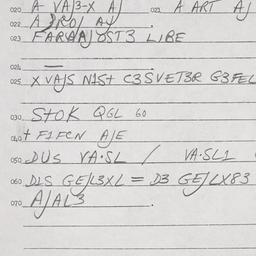 020 A- VA/3-X A/ 021 A ART A/
022 A A/
023 LIBE
024
025 X VA/S N1St C3SVET3R G3FEL
030 StOK QGL 60
040 + F1FCN A/E
050 DUS VA·SL / VA·SL1
060 DLS GE/L3XL = D3 GE/LX83
070 A/AL3